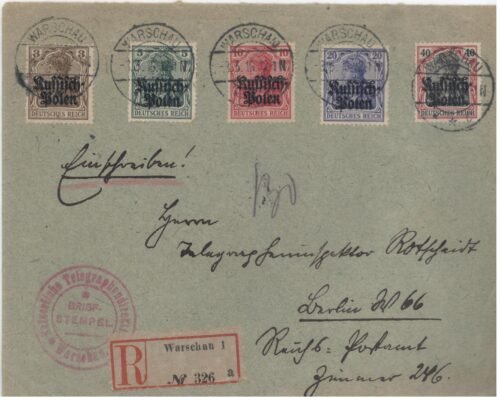 WARSCHAU WARSCHAU WARSCHAU WARSCHAU WARSCHAU
3 5 5 10 10 20 20 40 40
Russisch-Polen Russisch-Polen Russisch-Polen Russisch-Polen Russisch-Polen
DEUTSCHES REICH DEUTSCHES REICH DEUTSCHES REICH DEUTSCHES REICH DEUTSCHES REICH
Einschreiben!
Herrn
Telegrapheninspektor Rotscheidt
Berlin W 66
Reichs-Postamt
Zimmer 246.
Kaiserliche Telegraphendirektion
BRIEF-
STEMPEL
Warschau
R
Warschau 1
№ 326 a